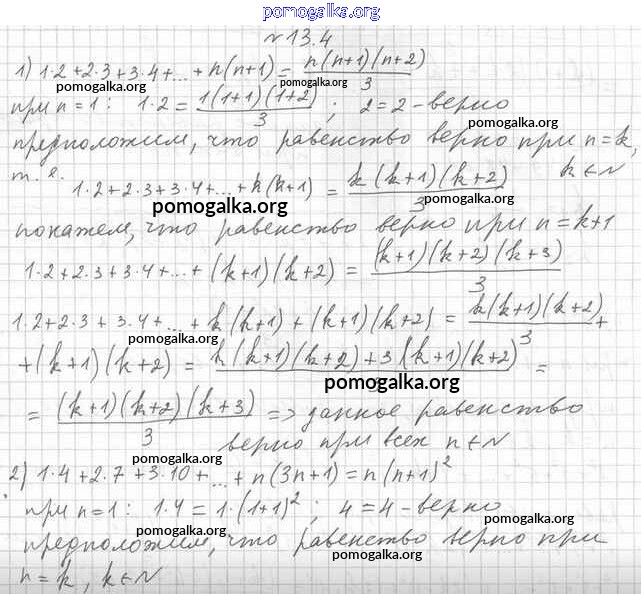 pomogalka.org
№13.4
1) 1·2+2·3+3·4+...+n(n+1)=n(n+1)(n+2)/3
pomogalka.org pomogalka.org
при n=1: 1·2=1(1+1)(1+2)/3; 2=2-верно
pomogalka.org
предположим, что равенство верно при n=k,
т.е. 1·2+2·3+3·4+...+k(k+1)=k(k+1)(k+2)/3 k∈N
pomogalka.org pomogalka.org
покажем, что равенство верно при n=k+1
1·2+2·3+3·4+...+(k+1)(k+2)=(k+1)(k+2)(k+3)/3
1·2+2·3+3·4+...+k(k+1)+(k+1)(k+2)=k(k+1)(k+2)/3+
pomogalka.org pomogalka.org
+(k+1)(k+2)=k(k+1)(k+2)+3(k+1)(k+2)/=
pomogalka.org
=(k+1)(k+2)(k+3)/3 => данное равенство
верно при всех n∈N
pomogalka.org
2) 1·4+2·7+3·10+...+n(3n+1)=n(n+1)²
при n=1: 1·4=1·(1+1)²; 4=4-верно
pomogalka.org pomogalka.org
предположим, что равенство верно при
pomogalka.org
n=k, k∈N